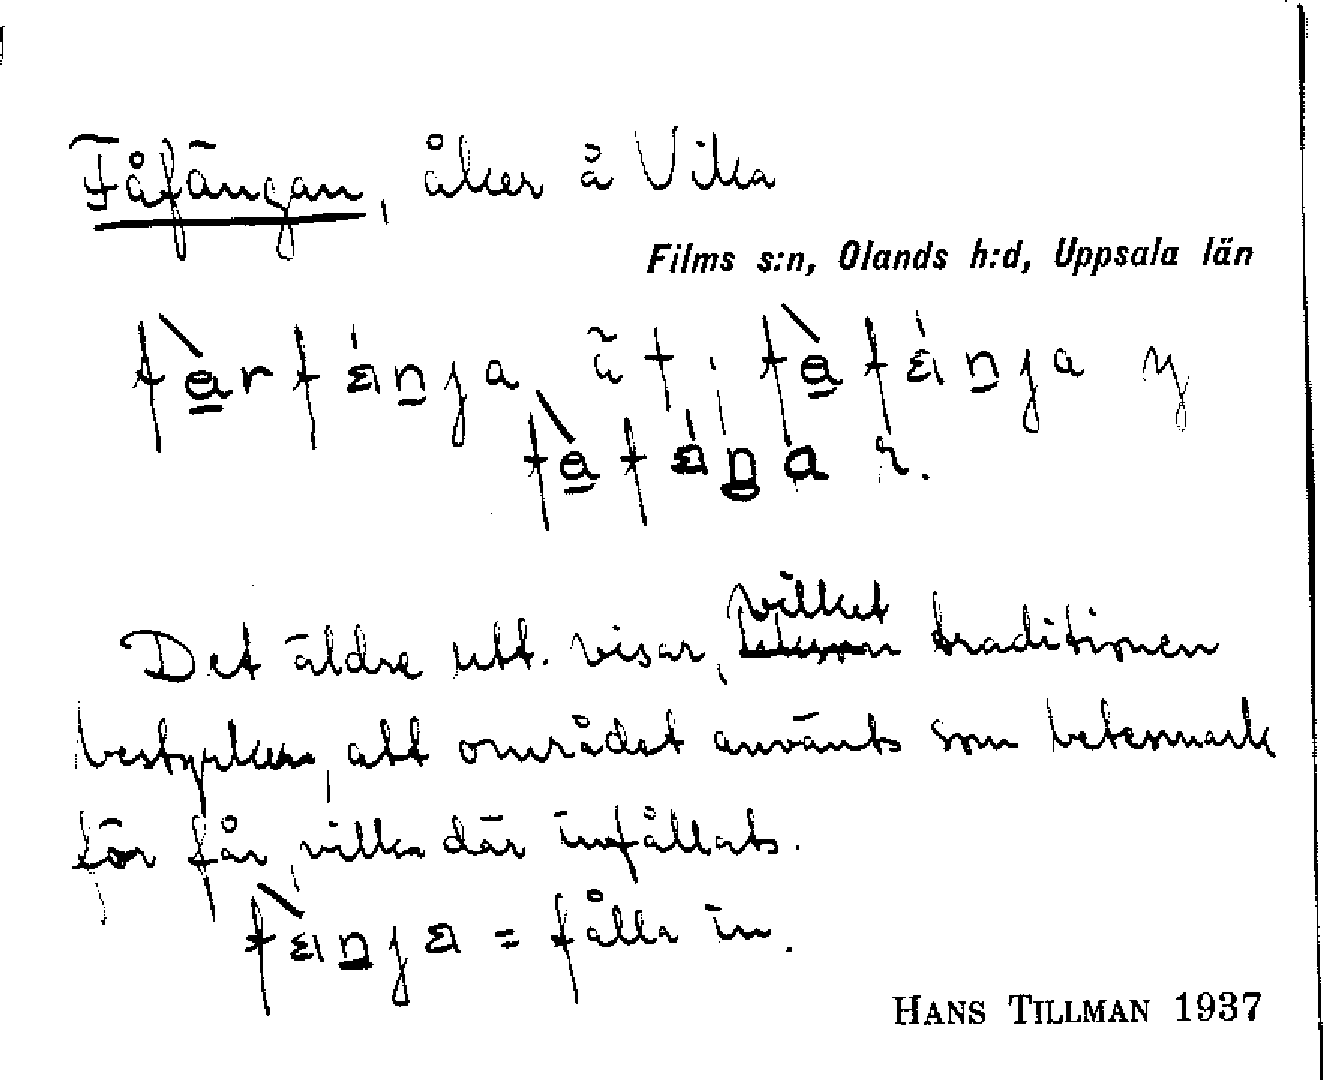 Fåfängan, åker å Vika
Films s:n, Olands h:d, Uppsala län
fàrfánja, ü t; fàfánja y
fàfáŋa r.
Det äldre utt. visar, vilket traditionen
bestyrker, att området använts som betesmark
för får, vilka där infållats.
fànja = fålla in.
HANS TILLMAN 1937